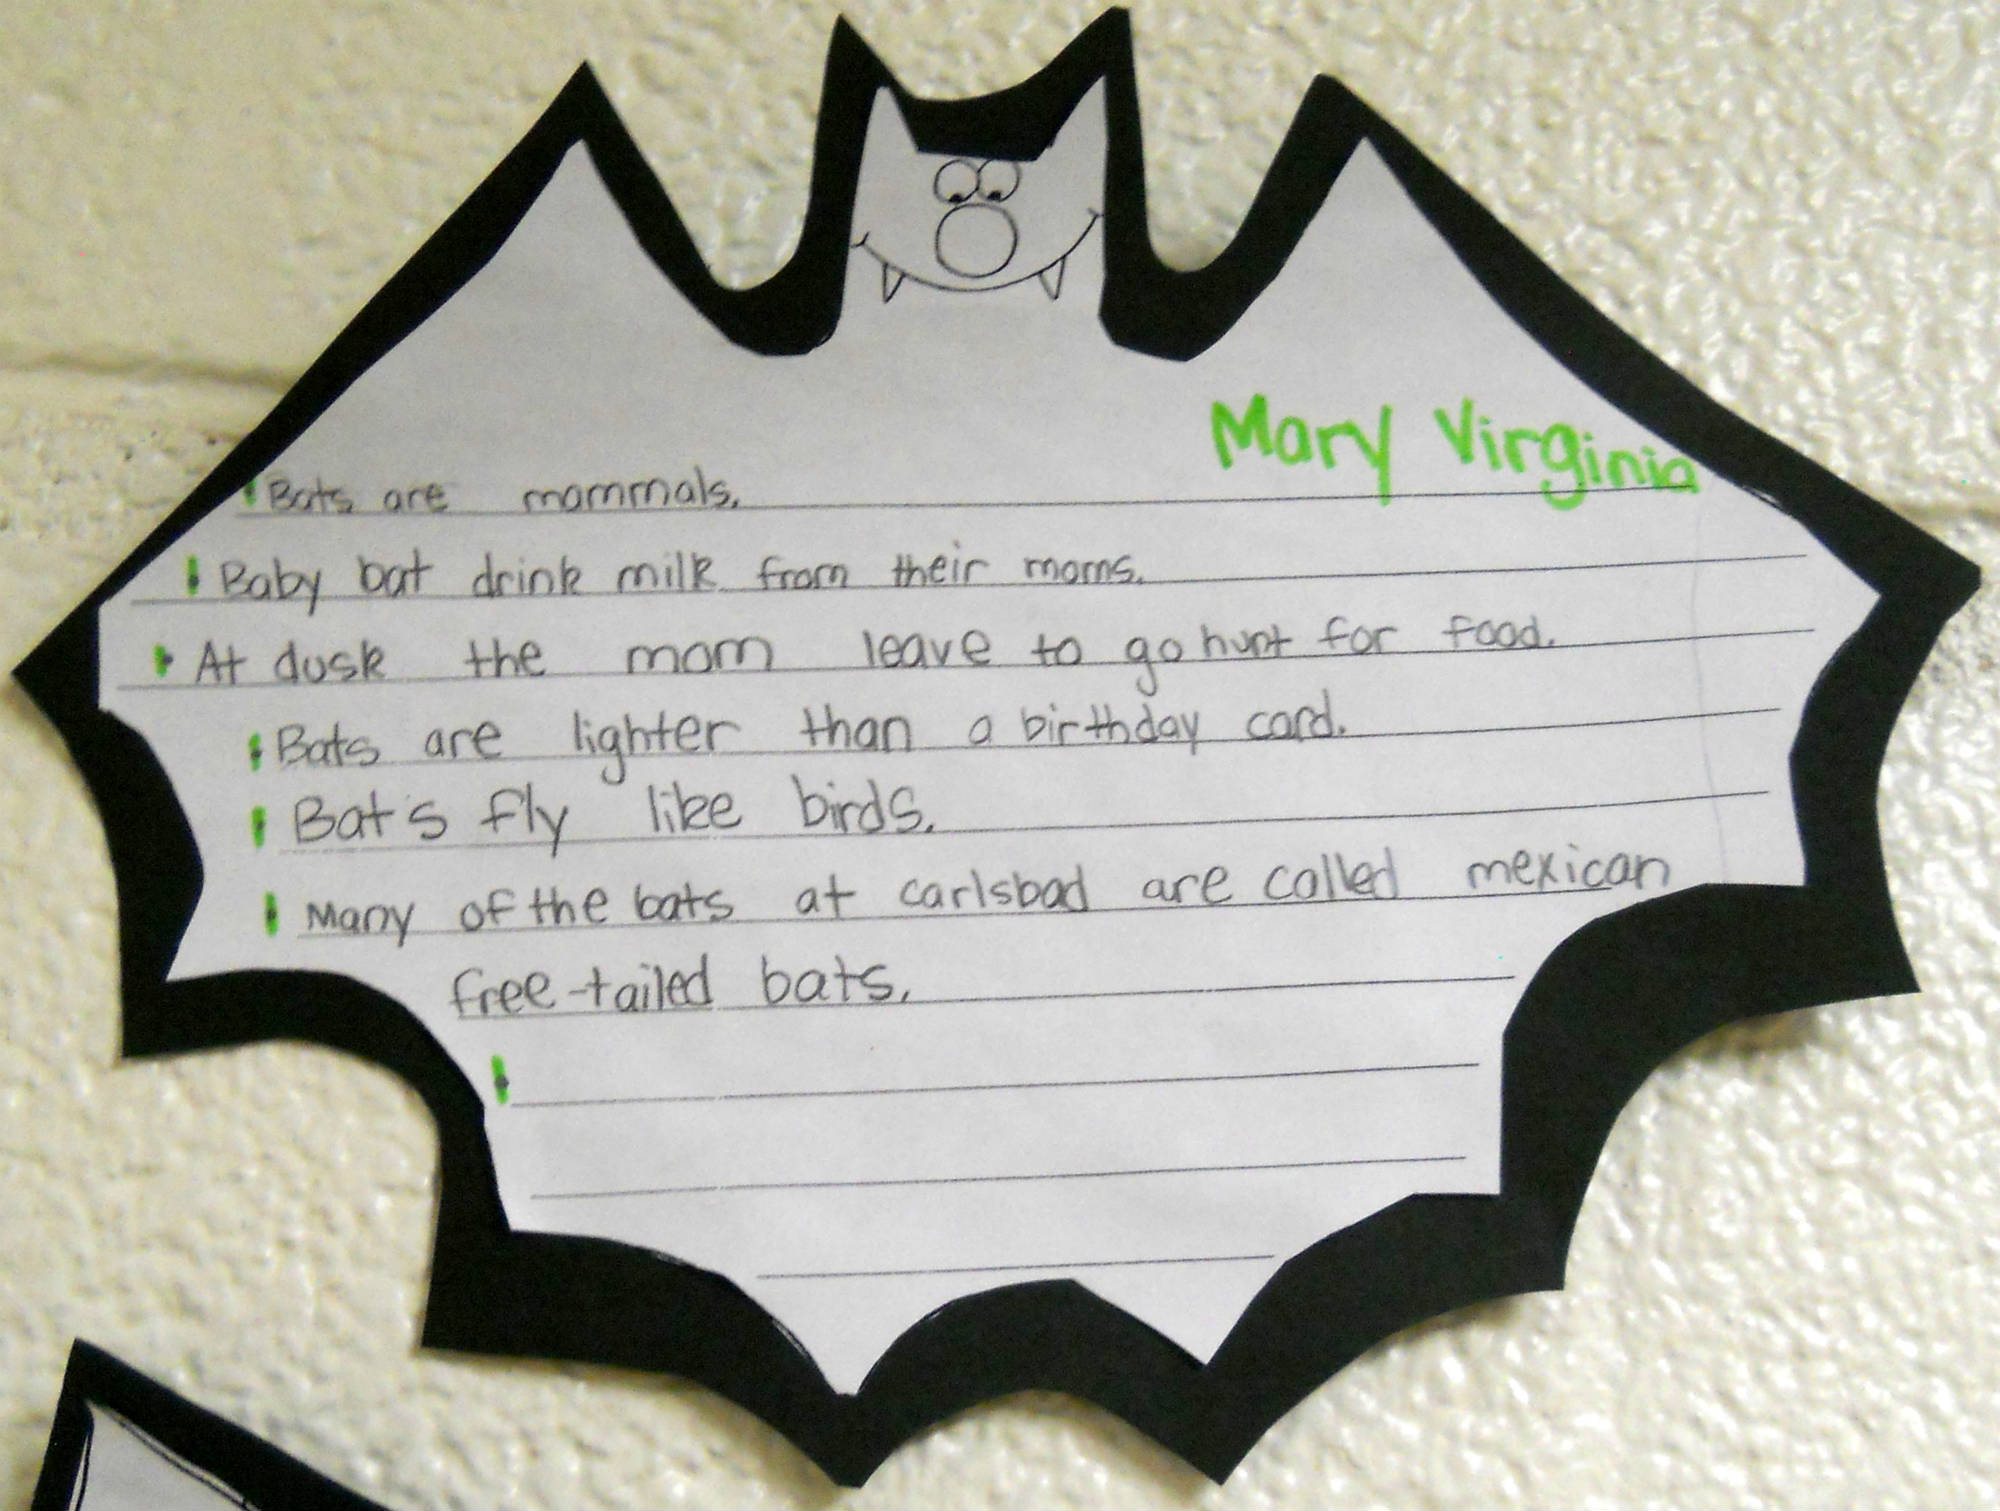 Mary Virginia
Bats are mammals.
Baby bat drink milk from their moms.
At dusk the mom leave to go hunt for food.
Bats are lighter than a birthday card.
Bats fly like birds.
Many of the bats at carlsbad are called mexican
free-tailed bats.